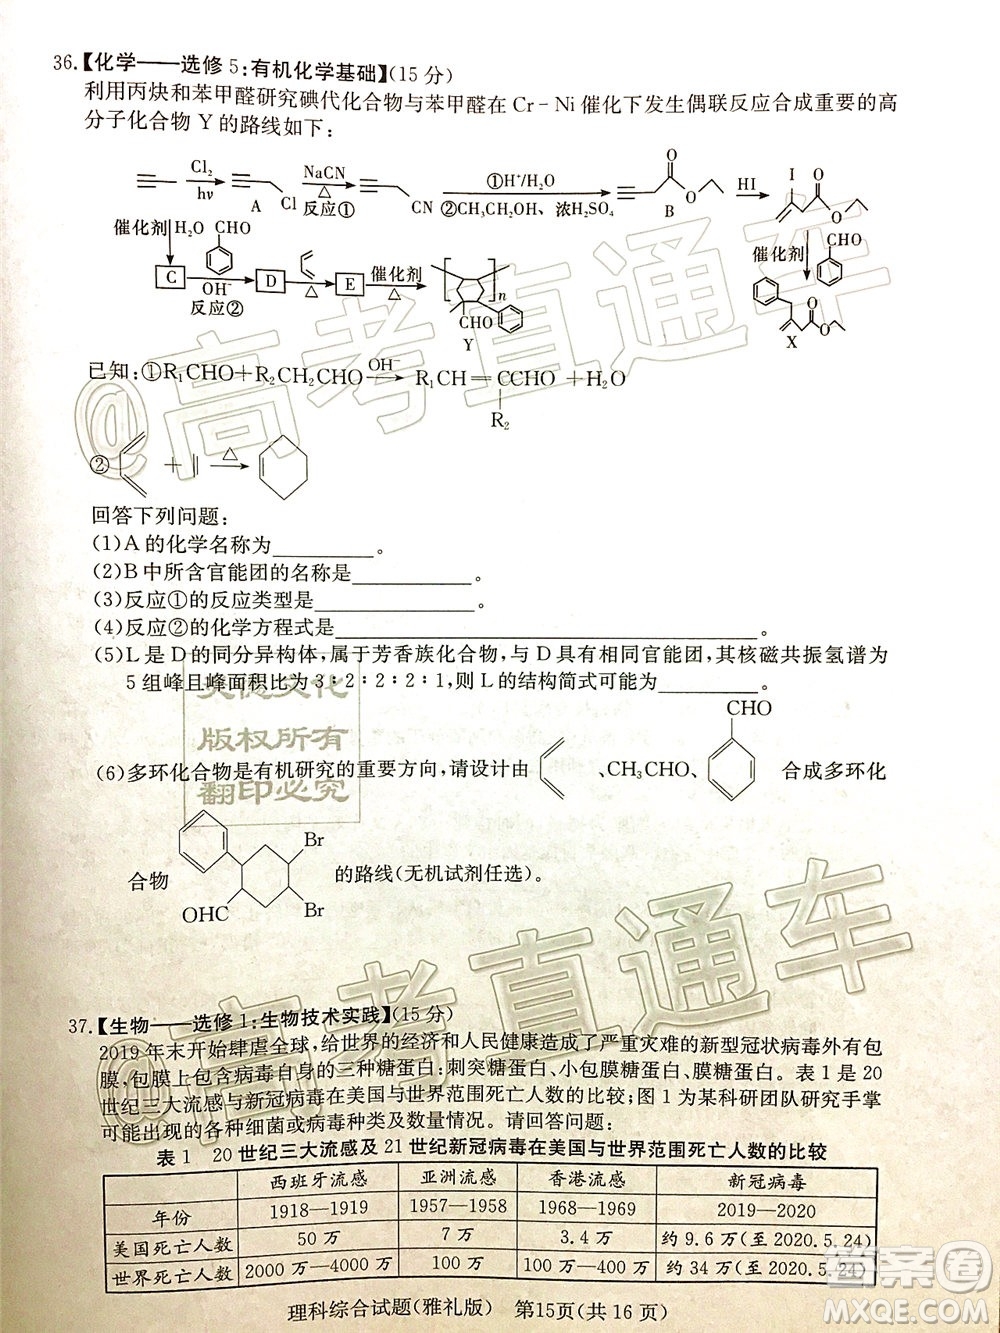 36.【化学——选修5:有机化学基础】(15分)
利用丙炔和苯甲醛研究碘代化合物与苯甲醛在 Cr－Ni 催化下发生偶联反应合成重要的高
分子化合物 Y 的路线如下:
Cl₂ hν Cl A NaCN △ 反应① CN ①H⁺/H₂O ②CH₃CH₂OH、浓H₂SO₄ O O B HI I O O
催化剂 H₂O CHO 催化剂 CHO
C OH⁻ 反应② D △ E 催化剂 △ n CHO Y O O X
已知:①R₁CHO+R₂CH₂CHO OH⁻ R₁CH=CCHO+H₂O
R₂
② + △
回答下列问题:
(1)A 的化学名称为________。
(2)B 中所含官能团的名称是________。
(3)反应①的反应类型是________。
(4)反应②的化学方程式是________。
(5)L 是 D 的同分异构体,属于芳香族化合物,与 D 具有相同官能团,其核磁共振氢谱为
5 组峰且峰面积比为 3∶2∶2∶2∶1,则 L 的结构简式可能为________。
CHO
(6)多环化合物是有机研究的重要方向,请设计由 、CH₃CHO、 合成多环化
Br
合物 的路线(无机试剂任选)。
OHC Br
37.【生物——选修1:生物技术实践】(15分)
2019 年末开始肆虐全球,给世界的经济和人民健康造成了严重灾难的新型冠状病毒外有包
膜,包膜上包含病毒自身的三种糖蛋白:刺突糖蛋白、小包膜糖蛋白、膜糖蛋白。表 1 是 20
世纪三大流感与新冠病毒在美国与世界范围死亡人数的比较;图 1 为某科研团队研究手掌
可能出现的各种细菌或病毒种类及数量情况。请回答问题:
表 1 20 世纪三大流感及 21 世纪新冠病毒在美国与世界范围死亡人数的比较
西班牙流感 亚洲流感 香港流感 新冠病毒
年份 1918—1919 1957—1958 1968—1969 2019—2020
美国死亡人数 50 万 7 万 3.4 万 约 9.6 万(至 2020.5.24)
世界死亡人数 2000 万—4000 万 100 万 100—400 万 约 34 万(至 2020.5.24)
理科综合试题(雅礼版) 第15页(共 16 页)
@高考直通车
@高考直通车
版权所有
翻印必究
答案卷
MXQE.COM